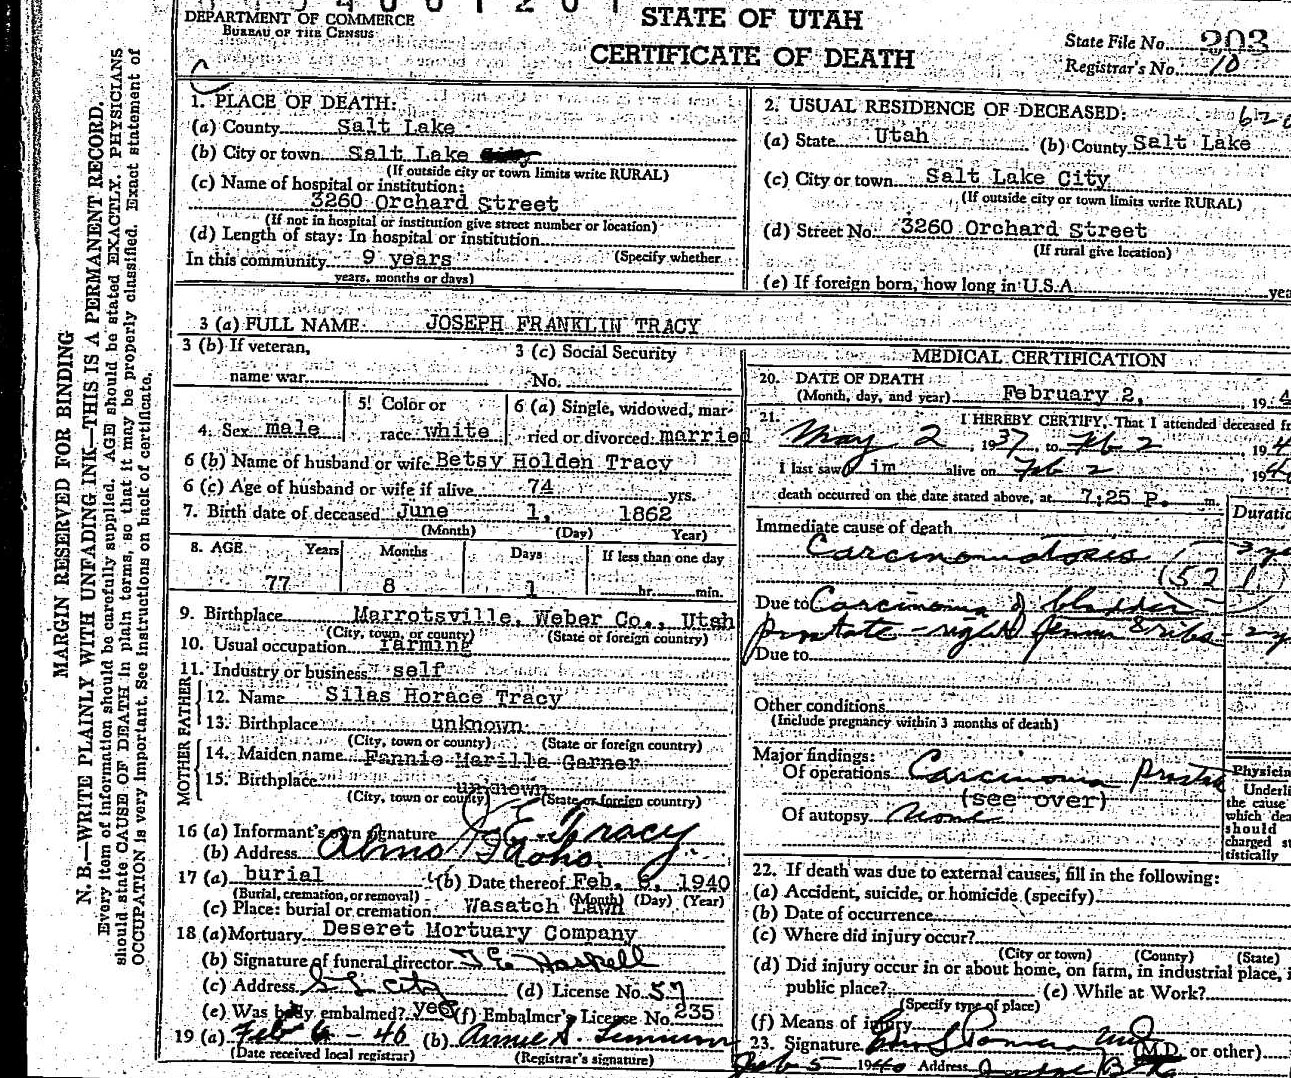 DEPARTMENT OF COMMERCE
BUREAU OF THE CENSUS
STATE OF UTAH
CERTIFICATE OF DEATH
State File No. 203
Registrar's No. 10
MARGIN RESERVED FOR BINDING
N. B.—WRITE PLAINLY WITH UNFADING INK—THIS IS A PERMANENT RECORD.
Every item of information should be carefully supplied. AGE should be stated EXACTLY. PHYSICIANS
should state CAUSE OF DEATH in plain terms, so that it may be properly classified. Exact statement of
OCCUPATION is very important. See instructions on back of certificate.
1. PLACE OF DEATH:
(a) County Salt Lake
(b) City or town Salt Lake
(If outside city or town limits write RURAL)
(c) Name of hospital or institution:
3260 Orchard Street
(If not in hospital or institution give street number or location)
(d) Length of stay: In hospital or institution
In this community 9 years (Specify whether
years, months or days)
2. USUAL RESIDENCE OF DECEASED:
(a) State Utah (b) County Salt Lake
(c) City or town Salt Lake City
(If outside city or town limits write RURAL)
(d) Street No. 3260 Orchard Street
(If rural give location)
(e) If foreign born, how long in U.S.A.
3 (a) FULL NAME JOSEPH FRANKLIN TRACY
3 (b) If veteran, 3 (c) Social Security
name war No.
4. Sex male 5. Color or race white 6 (a) Single, widowed, married or divorced married
6 (b) Name of husband or wife Betsy Holden Tracy
6 (c) Age of husband or wife if alive 74 yrs.
7. Birth date of deceased June 1, 1862
(Month) (Day) Year)
8. AGE Years Months Days If less than one day
77 8 1 hr. min.
9. Birthplace Marrotsville, Weber Co., Utah
(City, town, or county) (State or foreign country)
10. Usual occupation farming
11. Industry or business self
FATHER
12. Name Silas Horace Tracy
13. Birthplace unknown
(City, town or county) (State or foreign country)
MOTHER
14. Maiden name Fannie Marilla Garner
15. Birthplace unknown
(City, town or county) (State or foreign country)
16 (a) Informant's own signature J. E. Tracy
(b) Address Almo Idaho.
17 (a) burial (b) Date thereof Feb. 6, 1940
(Burial, cremation, or removal) (Month) (Day) (Year)
(c) Place: burial or cremation Wasatch Lawn
18 (a) Mortuary Deseret Mortuary Company
(b) Signature of funeral director
(c) Address S L City (d) License No. 57
(e) Was body embalmed? yes (f) Embalmer's License No. 235
19 (a) Feb 6 - 40 (b) Annie S.
(Date received local registrar) (Registrar's signature)
MEDICAL CERTIFICATION
20. DATE OF DEATH
(Month, day, and year) February 2, 19 4
21. I HEREBY CERTIFY, That I attended deceased
May 2, 1937, to Feb 2 19 4
I last saw him alive on Feb 2 1940
death occurred on the date stated above, at 7:25 P. m.
Immediate cause of death
Carcinomatosis 3
(52 1)
Due to Carcinoma of bladder
prostate - right femur & ribs - 2
Due to
Other conditions
(Include pregnancy within 3 months of death)
Major findings:
Of operations Carcinoma
(see over)
Of autopsy None
Underli
the cause
which dea
should
charged st
tistically
22. If death was due to external causes, fill in the following:
(a) Accident, suicide, or homicide (specify)
(b) Date of occurrence
(c) Where did injury occur?
(City or town) (County) (State)
(d) Did injury occur in or about home, on farm, in industrial place, i
public place? (e) While at Work?
(Specify type of place)
(f) Means of injury
23. Signature (M.D. or other)
Feb 5 1940 Address